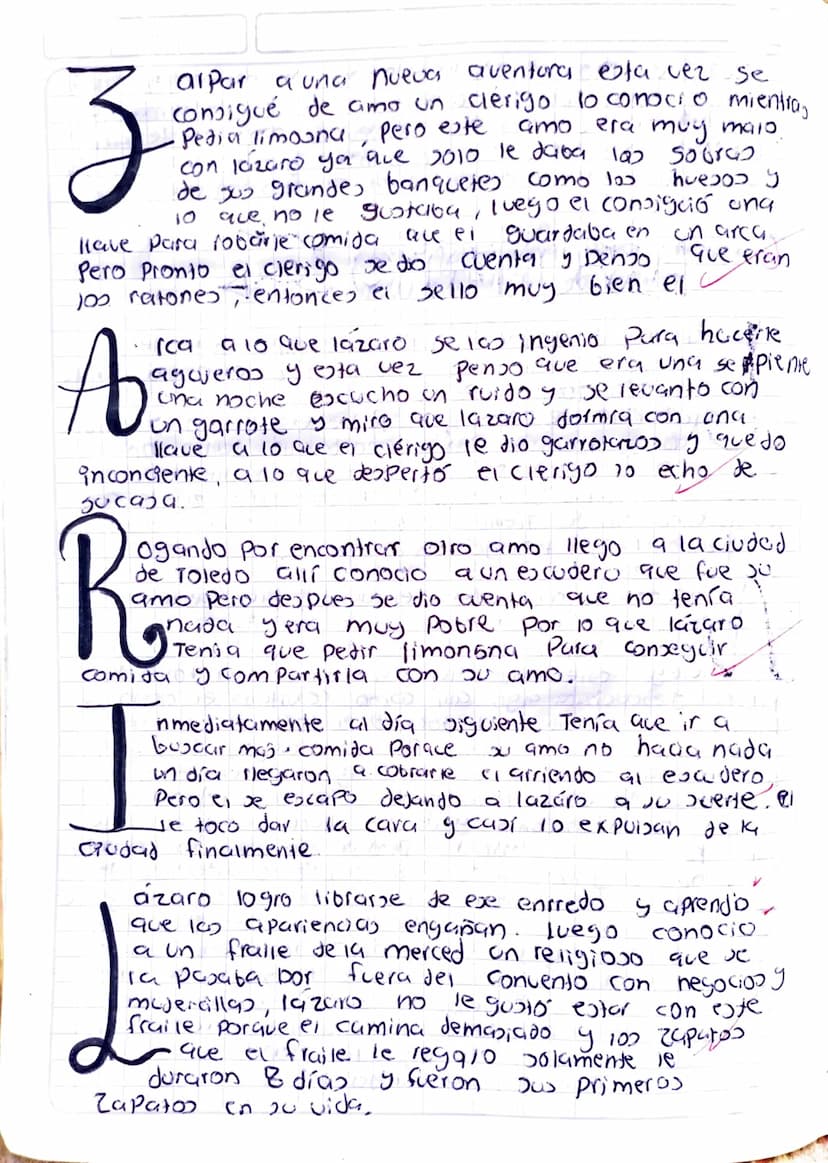 Zarpar a una nueva aventura esta vez se
consigué de amo un clérigo lo conocio mientras
Pedia limosna, pero este amo era muy malo
con lázaro ya que solo le daba las sobras
de sus grandes banquetes como los huesos y
lo que no le gustaba, luego el consiguió una
llave para robarle comida que el guardaba en un arca
Pero pronto el clerigo se dio cuenta y penso que eran
los ratones, entonces el sello muy bien el
Arca a lo que lázaro se las ingenio para hacerle
agujeros y esta vez penso que era una serpiente
una noche escucho un ruido y se levanto con
un garrote y miro que lazaro dormía con una
llave a lo que el clérigo le dio garrotazos y quedo
inconciente, a lo que despertó el clerigo lo echo de
su casa.
Rogando por encontrar otro amo llego a la ciudad
de Toledo allí conocio a un escudero que fue su
amo pero despues se dio cuenta que no tenía
nada y era muy pobre por lo que lázaro
Tenia que pedir limonsna para conseguir
comida y compartirla con su amo.
Inmediatamente al día siguiente Tenía que ir a
buscar mas comida porque su amo no hacia nada
un día llegaron a cobrarle el arriendo al escudero,
Pero el se escapo dejando a lazáro a su suerte. el
le toco dar la cara y casí lo expulsan de la
ciudad finalmente.
Lázaro logro librarse de ese enrredo y aprendio
que las apariencias engañan. luego conocio
a un fraile de la merced un religioso que se
la pasaba por fuera del convento con negocios y
mujercillas, lázaro no le gustó estar con este
fraile porque el camina demasiado y los zapatos
que el fraile le regalo solamente le
duraron 8 días y fueron sus primeros
Zapatos en su vida.